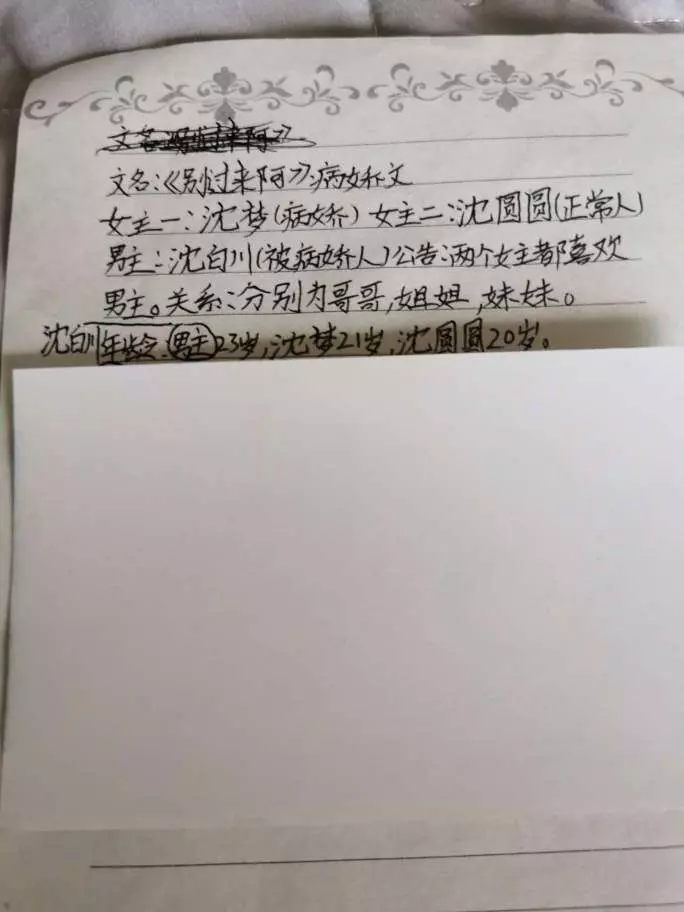 文名:《别过来阿》
文名:《别过来阿》病娇文
女主一:沈梦(病娇) 女主二:沈圆圆(正常人)
男主:沈白川(被病娇人)公告:两个女主都喜欢
男主。关系:分别为哥哥,姐姐,妹妹。
沈白川年龄:男主23岁,沈梦21岁,沈圆圆20岁。